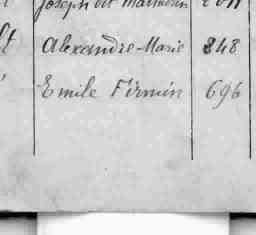 Joseph dit Mathurin
Alexandre-Marie 248
Emile Firmin 696